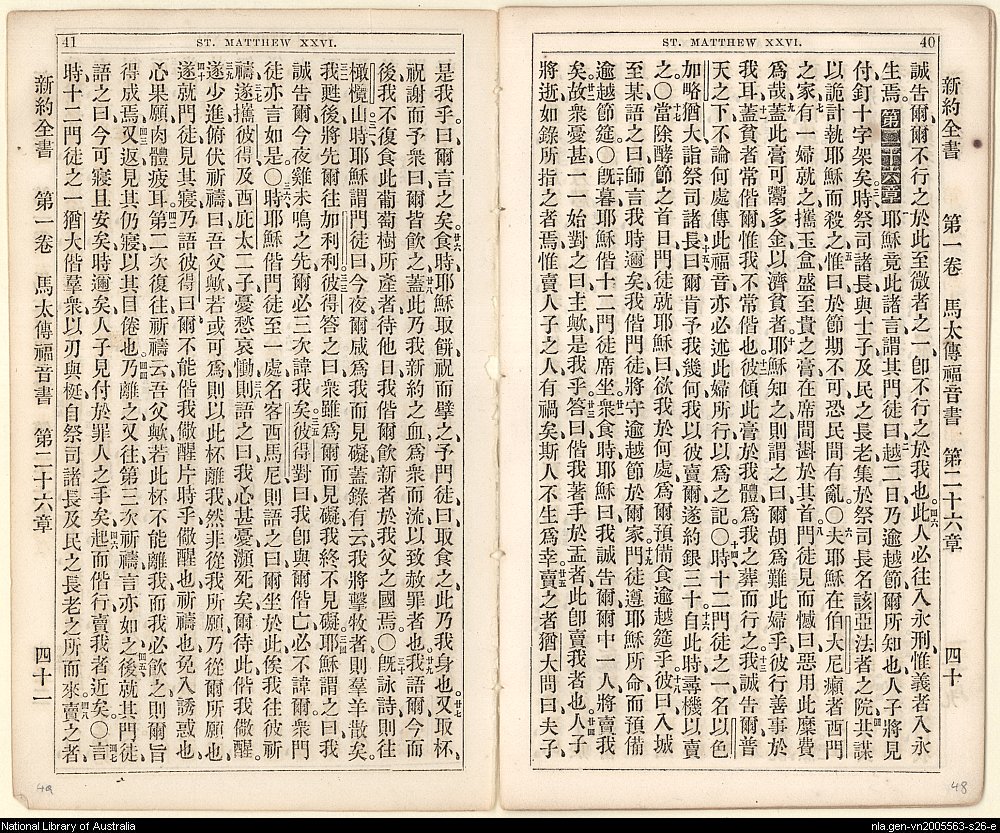 ST. MATTHEW XXVI.
40
新約全書 第一卷 馬太傳福音書 第二十六章 四十
誠告爾、爾不行之於此至微者之一、卽不行之於我也。四六此人必往入永刑、惟義者入永
生焉。第二十六章 一耶穌竟此諸言、謂其門徒曰、二越二日乃逾越節、爾所知也、人子將見
付釘十字架矣、三時祭司諸長與士子及民之長老、集於祭司長名該亞法者之院、四共謀
以詭計執耶穌而殺之、五惟曰、於節期不可、恐民間有亂。○六夫耶穌在伯大尼癩者西門
之家、七有一婦就之、攜玉盒盛至貴之膏、在席間斟於其首、八門徒見而憾曰、惡用此糜費
爲哉、九蓋此膏可鬻多金、以濟貧者、十耶穌知之、則謂之曰、爾胡爲難此婦乎、彼行善事於
我耳、十一蓋貧者常偕爾、惟我不常偕爾也、十二彼傾此膏於我體、爲我之葬而行之、十三我誠告爾、普
天之下、不論何處傳此福音、亦必述此婦所行、以爲之記。○十四時十二門徒之一、名以色
加略猶大、詣祭司諸長、十五曰、爾肯予我幾何、我以彼賣爾、遂約銀三十、十六自此時尋機以賣
之。○十七當除酵節之首日、門徒就耶穌曰、欲我於何處爲爾預備食逾越筵乎、十八彼曰、入城
至某、語之曰、師言我時邇矣、我偕門徒將守逾越節於爾家、十九門徒遵耶穌所命、而預備
逾越節筵。○二十旣暮、耶穌偕十二門徒席坐、廿一衆食時、耶穌曰、我誠告爾、爾中一人將賣我
矣、廿二故衆憂甚、一一始對之曰、主歟、是我乎。廿三答曰、偕我著手於盂者、此卽賣我者也、廿四人子
將逝、如錄所指之者焉、惟賣人子之人有禍矣、斯人不生爲幸、廿五賣之者猶大問曰、夫子
48
41
ST. MATTHEW XXVI.
是我乎、曰、爾言之矣。廿六食時、耶穌取餅、祝而擘之、予門徒曰、取食之、此乃我身也。廿七又取杯、
祝謝而予衆曰、爾皆飲之、廿八蓋此乃我新約之血、爲衆而流、以致赦罪者也。廿九我語爾、今而
後、我不復食此葡萄樹所產者、待他日、我偕爾飲新者於我父之國焉。○三十旣詠詩、則往
橄欖山、三一時耶穌謂門徒曰、今夜爾咸爲我而見礙、蓋錄有云、我將擊牧者、則羣羊散矣。
三二我甦後、將先爾往加利利、三三彼得答之曰、衆雖爲爾而見礙、我終不見礙、三四耶穌謂之曰、我
誠告爾、今夜雞未鳴之先、爾必三次諱我矣。三五彼得對曰、我卽與爾偕亡、必不諱爾、衆門
徒亦言如是。○三六時耶穌偕門徒至一處、名客西馬尼、則語之曰、爾坐於此、俟我往彼祈
禱、三七遂攜彼得及西庇太二子、憂愁哀慟、三八則語之曰、我心甚憂、瀕死矣、爾待此、偕我儆醒。
三九遂少進、俯伏祈禱曰、吾父歟、若或可爲、則以此杯離我、然非從我所願、乃從爾所願也、
四十遂就門徒、見其寢、乃語彼得曰、爾不能偕我儆醒片時乎、四一儆醒也、祈禱也、免入誘惑也、
心果願、肉體疲耳、四二第二次復往祈禱云、吾父歟、若此杯不能離我、而我必飲之、則爾旨
得成焉、四三又返見其仍寢、以其目倦也、四四乃離之又往、第三次祈禱、言亦如之、四五後就其門徒
語之曰、今可寢且安矣、時邇矣、人子見付於罪人之手矣、四六起而偕行、賣我者近矣。○四七言
時、十二門徒之一猶大、偕羣衆以刃與梃、自祭司諸長及民之長老之所而來、四八賣之者
新約全書 第一卷 馬太傳福音書 第二十六章 四十一
49
National Library of Australia
nla.gen-vn2005563-s26-e